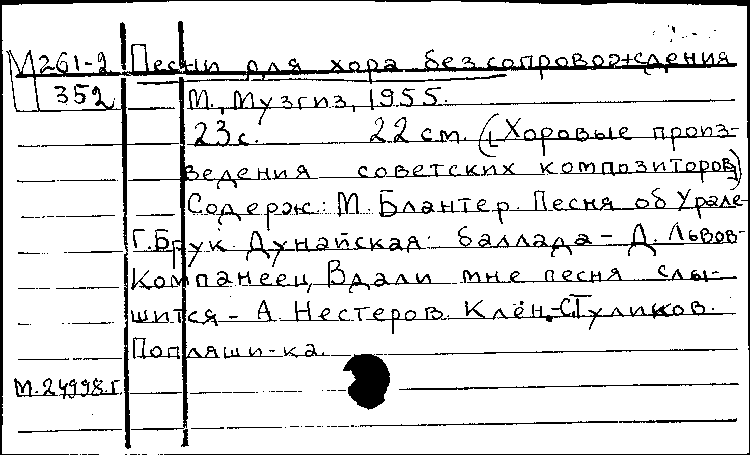 М261-2 Песни для хора без сопровождения
352 М., Музгиз, 1955.
23с. 22 см. ([Хоровые произ-
ведения советских композиторов])
Содерж.: М. Блантер. Песня об Урале-
Г. Брук. Дунайская баллада - Д. Львов-
Компанеец, Вдали мне песня слы-
шится - А. Нестеров. Клён.-С.Туликов.
Попляши-ка.
М.24998г.